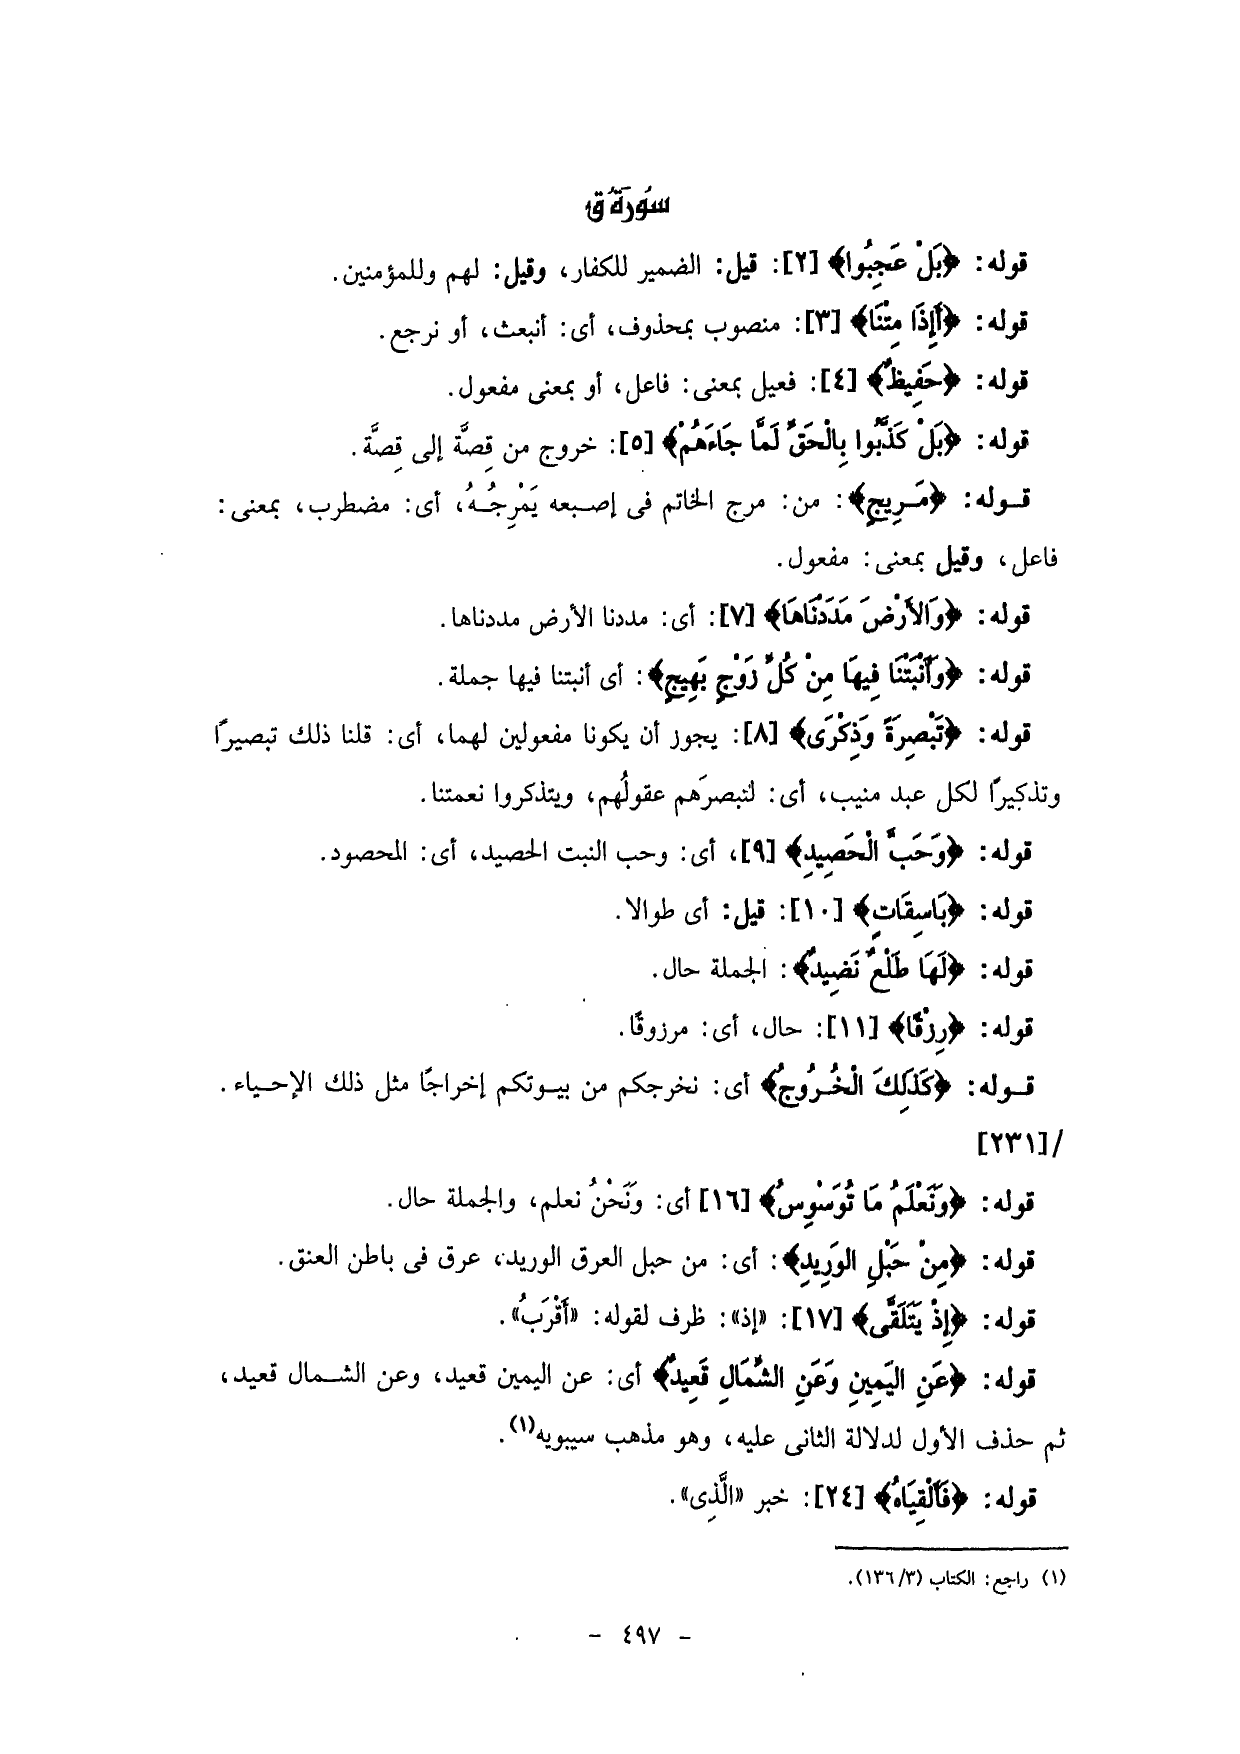 سُورَةُ ق
قوله: ﴿بَلْ عَجِبُوا﴾ [٢]: قيل: الضمير للكفار، وقيل: لهم وللمؤمنين.
قوله: ﴿أَإِذَا مِتْنَا﴾ [٣]: منصوب بمحذوف، أى: أنبعث، أو نرجع.
قوله: ﴿حَفِيظٌ﴾ [٤]: فعيل بمعنى: فاعل، أو بمعنى مفعول.
قوله: ﴿بَلْ كَذَّبُوا بِالْحَقِّ لَمَّا جَاءَهُمْ﴾ [٥]: خروج من قِصَّة إلى قِصَّة.
قوله: ﴿مَرِيجٍ﴾: من: مرج الخاتم فى إصبعه يَمْرِجُهُ، أى: مضطرب، بمعنى:
فاعل، وقيل بمعنى: مفعول.
قوله: ﴿وَالأَرْضَ مَدَدْنَاهَا﴾ [٧]: أى: مددنا الأرض مددناها.
قوله: ﴿وَأَنْبَتْنَا فِيهَا مِنْ كُلِّ زَوْجٍ بَهِيجٍ﴾: أى أنبتنا فيها جملة.
قوله: ﴿تَبْصِرَةً وَذِكْرَى﴾ [٨]: يجوز أن يكونا مفعولين لهما، أى: قلنا ذلك تبصيرًا
وتذكيرًا لكل عبد منيب، أى: لتبصرَهم عقولُهم، ويتذكروا نعمتنا.
قوله: ﴿وَحَبَّ الْحَصِيدِ﴾ [٩]، أى: وحب النبت الحصيد، أى: المحصود.
قوله: ﴿بَاسِقَاتٍ﴾ [١٠]: قيل: أى طوالا.
قوله: ﴿لَهَا طَلْعٌ نَضِيدٌ﴾: الجملة حال.
قوله: ﴿رِزْقًا﴾ [١١]: حال، أى: مرزوقًا.
قوله: ﴿كَذَلِكَ الْخُرُوجُ﴾ أى: نخرجكم من بيوتكم إخراجًا مثل ذلك الإحياء.
/[٢٣١]
قوله: ﴿وَنَعْلَمُ مَا تُوَسْوِسُ﴾ [١٦] أى: وَنَحْنُ نعلم، والجملة حال.
قوله: ﴿مِنْ حَبْلِ الوَرِيدِ﴾: أى: من حبل العرق الوريد، عرق فى باطن العنق.
قوله: ﴿إِذْ يَتَلَقَّى﴾ [١٧]: «إذ»: ظرف لقوله: «أَقْرَبُ».
قوله: ﴿عَنِ اليَمِينِ وَعَنِ الشِّمَالِ قَعِيدٌ﴾ أى: عن اليمين قعيد، وعن الشمال قعيد،
ثم حذف الأول لدلالة الثانى عليه، وهو مذهب سيبويه(١).
قوله: ﴿فَأَلْقِيَاهُ﴾ [٢٤]: خبر «الَّذِى».
(١) راجع: الكتاب (١٣٦/٣).
- ٤٩٧ -